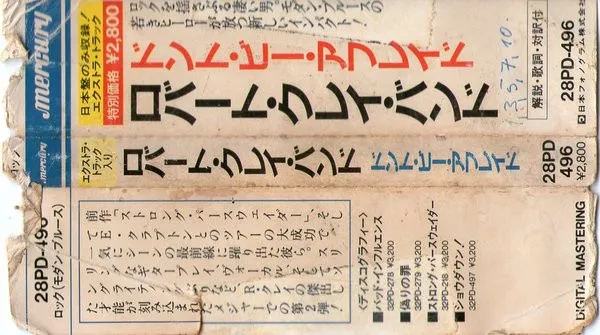 ロックを揺さぶる凄い男。モダン・ブルースの
若きヒーローが放つ新しいインパクト!
mercury
日本盤のみ収録!
エクストラ・トラック
特別価格 ¥2,800
ドント・ビー・アフレイド
ロバート・クレイ・バンド
解説・歌詞・対訳付
28PD-496
日本フォノグラム株式会社
mercury
エクストラ・
トラック
入り
ロバート・クレイ・バンド
ドント・ビー・アフレイド
28PD
496
¥2,800
28PD-496
ロック(モダン・ブルース)
前作「ストロング・パースウェイダー」、そし
てE・クラプトンとのツアーの大成功で、
一気にシーンの最前線に躍り出た彼ら。スリ
リングなギター・プレイ、ヴォーカル、そしてソ
ングライティング
りなど、R・クレイの傑出し
た才能が刻み込まれたメジャーでの第2弾!
〈ディスコグラフィー〉
■バッド・インフルエンス
32PD-278 ¥3,200
■偽りの罪
32PD-279 ¥3,200
■ストロング・パースウェイダー
32PD-218 ¥3,200
■ショウダウン!
32PD-497 ¥3,200
DIGITAL MASTERING